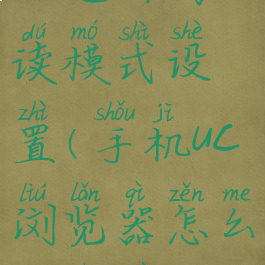 dú mó shì shè
读模式设
zhì shǒu jī
置(手机UC
liú lǎn qì zěn me
浏览器怎么